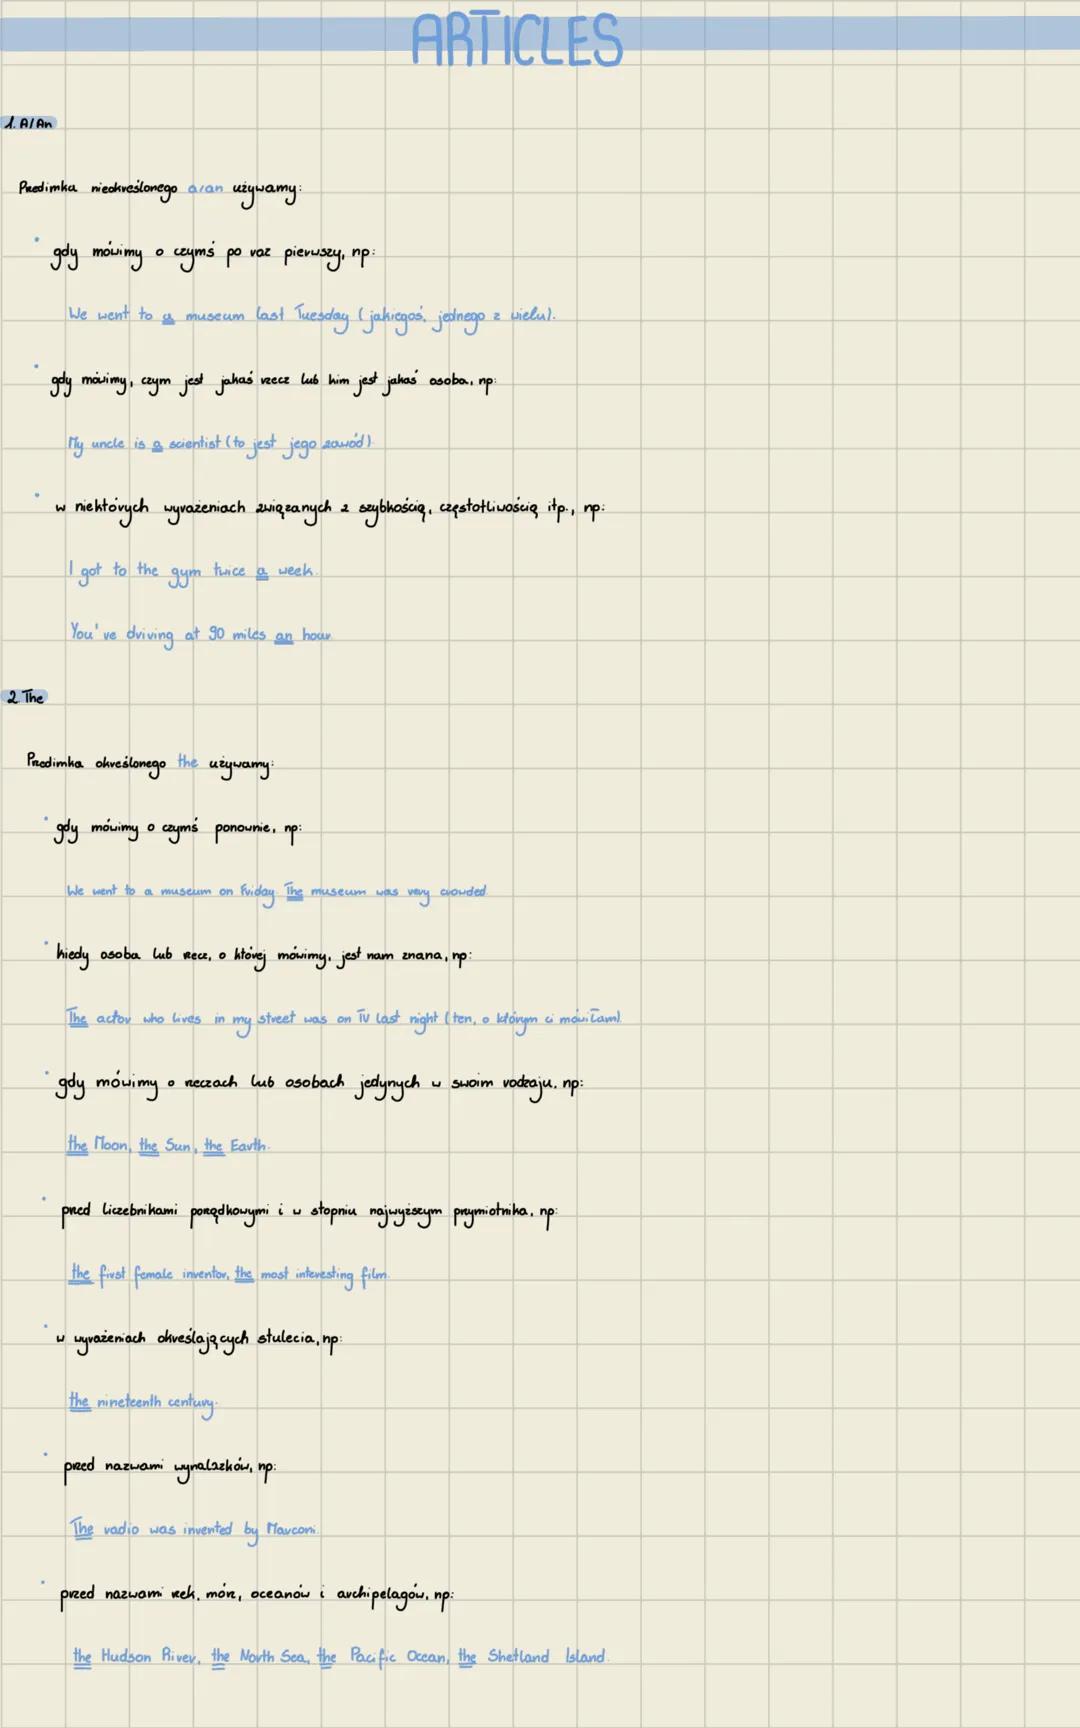 ARTICLES
1. A/An
Przedimka nieokreślonego a/an używamy:
• gdy mówimy o czymś po raz pierwszy, np:
We went to a museum last Tuesday (jakiegoś, jednego z wielu).
• gdy mówimy, czym jest jakaś rzecz lub kim jest jakaś osoba, np:
My uncle is a scientist (to jest jego zawód).
• w niektórych wyrażeniach związanych z szybkością, częstotliwością itp., np:
I got to the gym twice a week.
You've driving at 90 miles an hour.
2. The
Przedimka określonego the używamy:
• gdy mówimy o czymś ponownie, np:
We went to a museum on Friday. The museum was very crowded.
• kiedy osoba lub rzecz, o której mówimy, jest nam znana, np:
The actor who lives in my street was on TV last night (ten, o którym ci mówiłam).
• gdy mówimy o rzeczach lub osobach jedynych w swoim rodzaju, np:
the Moon, the Sun, the Earth.
• przed liczebnikami porządkowymi i w stopniu najwyższym przymiotnika, np:
the first female inventor, the most interesting film.
• w wyrażeniach określających stulecia, np:
the nineteenth century.
• przed nazwami wynalazków, np:
The radio was invented by Marconi.
• przed nazwami rzek, mórz, oceanów i archipelagów, np:
the Hudson River, the North Sea, the Pacific Ocean, the Shetland Island.